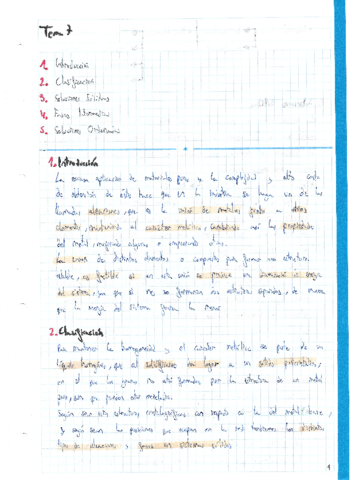 Tema 7
1. Introducción
2. Clasificación
3. Soluciones Sólidas
4. Fases Intermedias
5. Soluciones Ordenadas
1. Introducción
La escasa aplicación de materiales puros y la complejidad y alto coste
de obtención de éstos hace que en la industria se haga uso de las
llamadas aleaciones, que es la unión de metales junto a otros
elementos, manteniendo el carácter metálico, cambiando así las propiedades
del metal, mejorando algunas o empeorando otras.
La unión de distintos elementos o compuestos para formar una estructura
estable, es factible si en esta unión se produce una disminución de energía
del sistema, ya que si no se formarían dos estructuras separadas, de manera
que la energía del sistema fuera la menor
2. Clasificación
Para mantener la homogeneidad y el carácter metálico se parte de un
líquido homogéneo, que al solidificarse da lugar a un sólido policristalino,
en el que los granos no están formados por la estructura de un metal
puro, sino que pueden haber mezclados.
Según sea esta estructura cristalográfica con respecto a la del metal base,
y según sean las posiciones que ocupen en la red tendremos los distintos
tipos de aleaciones, y forman un sistema sólido
1